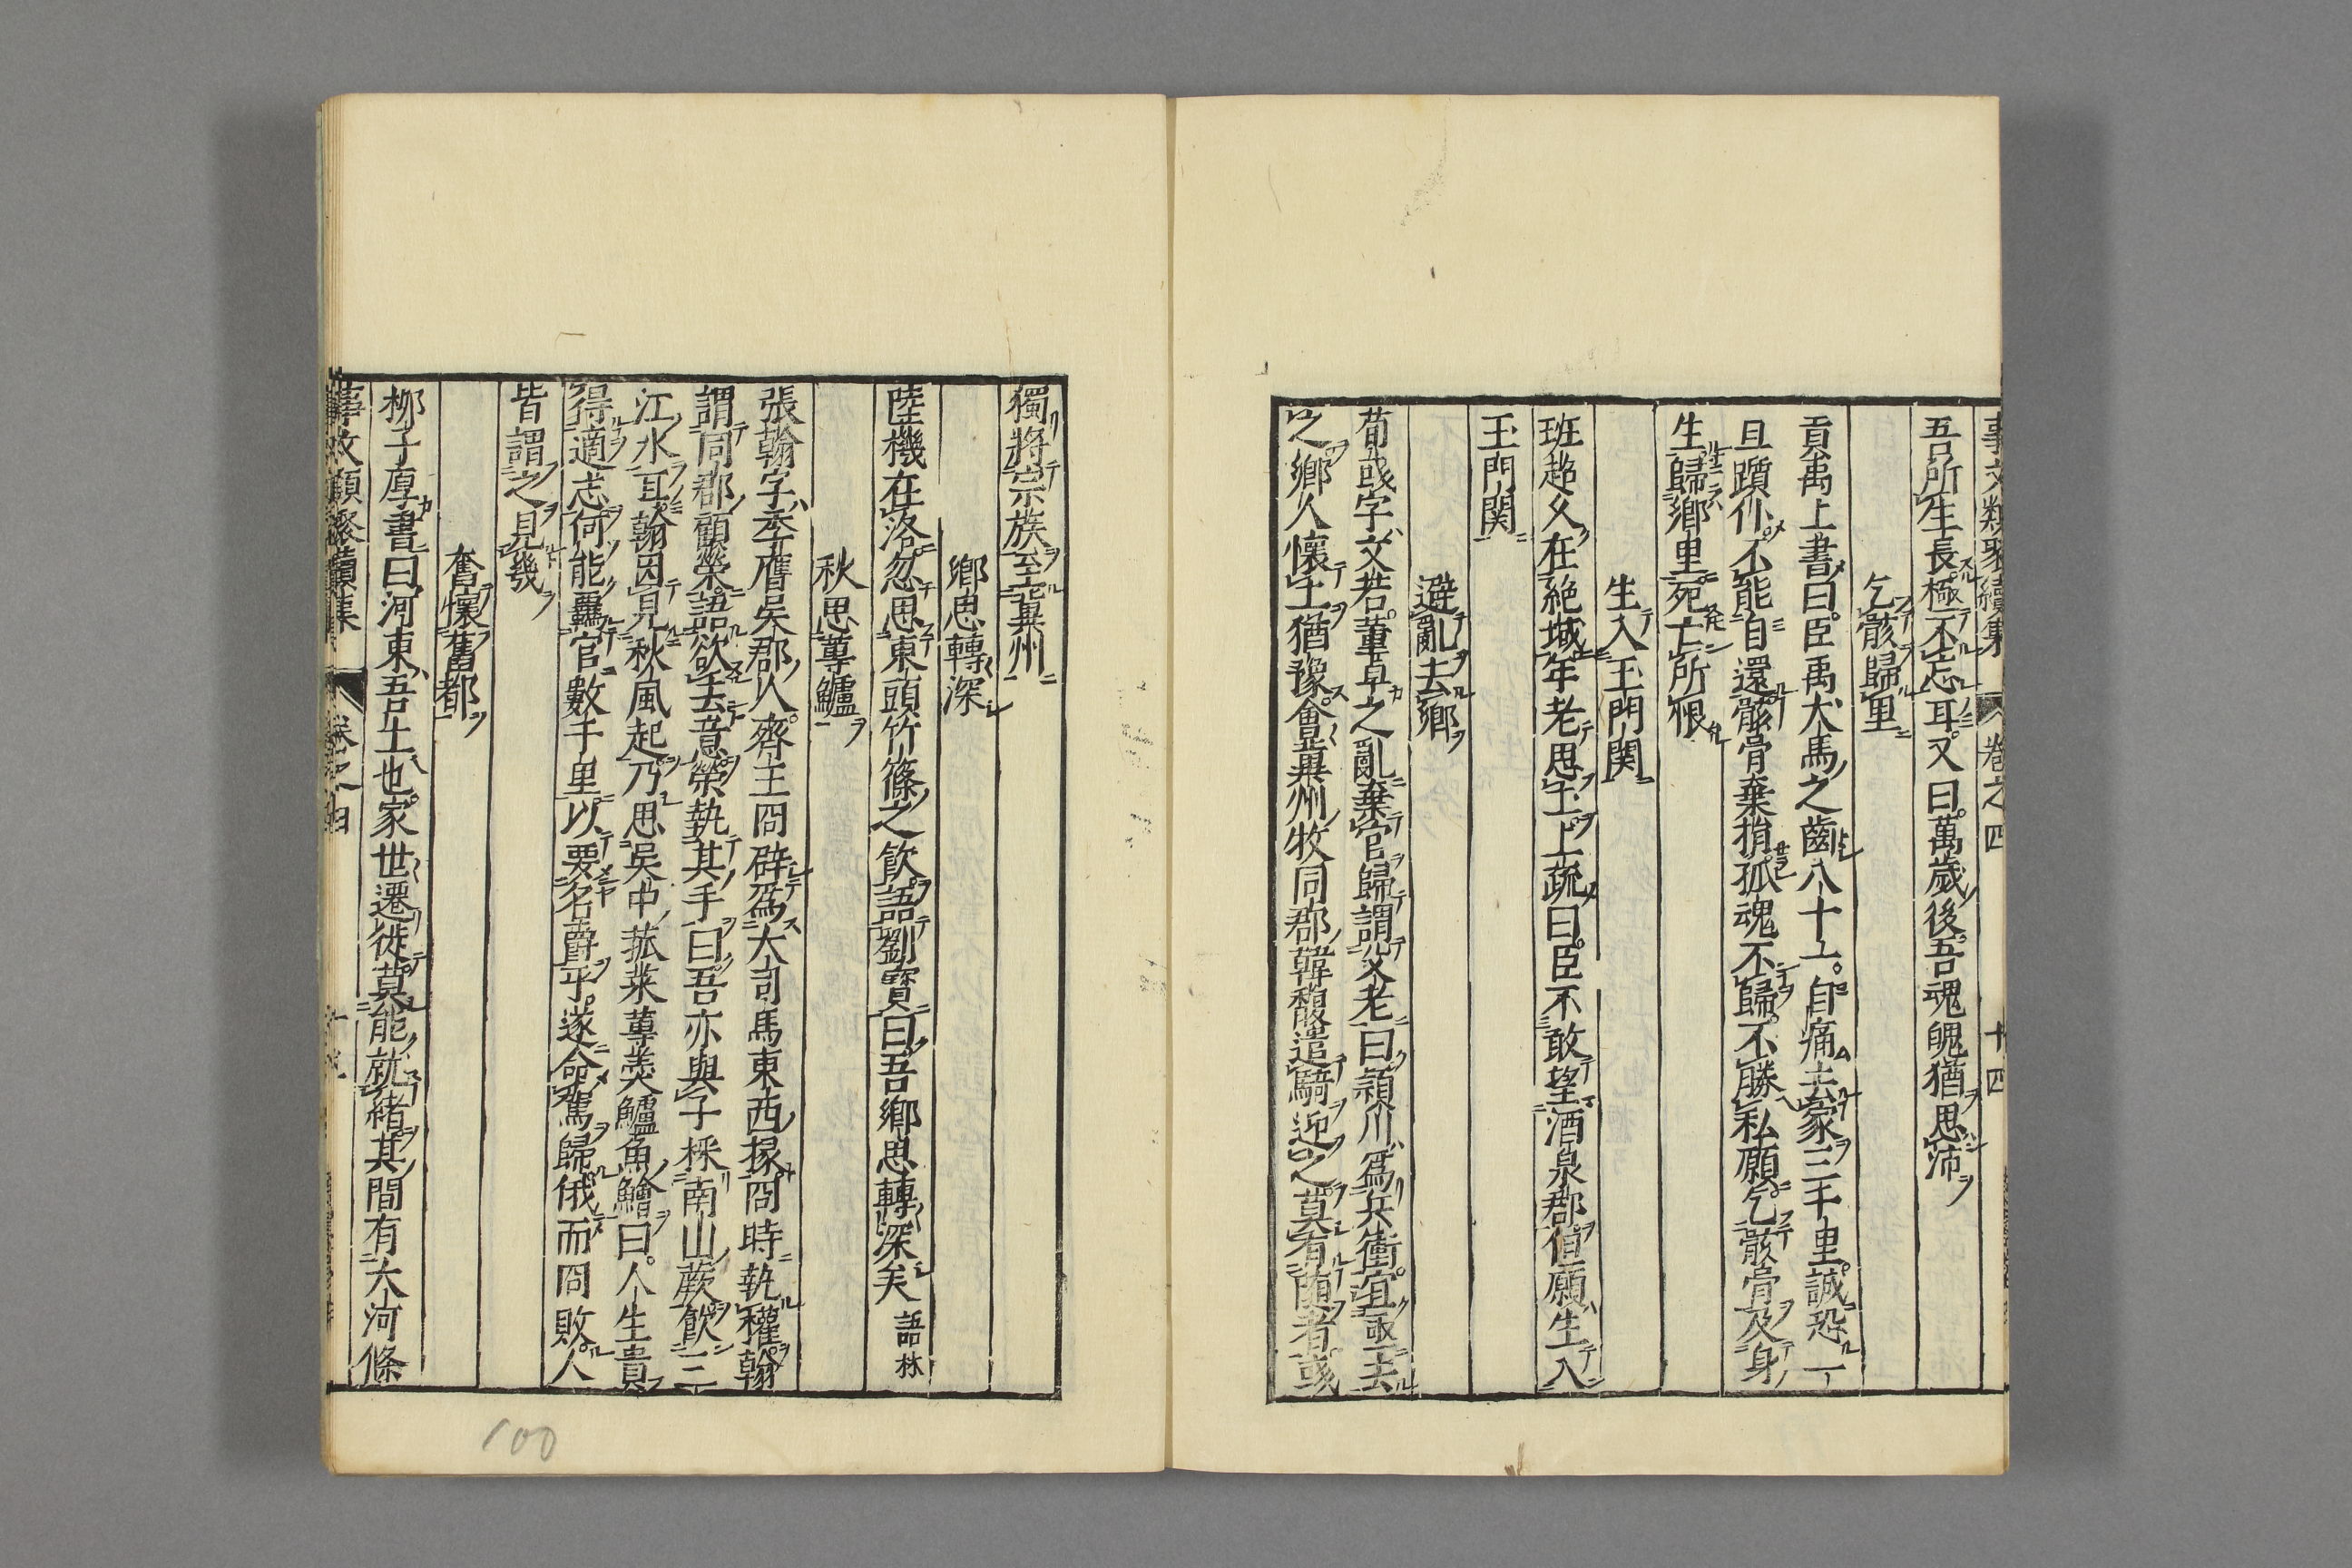 事文類聚續集 卷之四 十四
吾所生長極不忘耳又曰萬歲後吾魂魄猶思沛
乞骸歸里
貢禹上書曰臣禹犬馬之齒八十一自痛去家三千里誠恐一
旦蹎仆不能自還骸骨棄捐孤魂不歸不勝私願乞骸骨及身
生歸鄉里死亡所恨
生入玉門関
班超久在絶域年老思土上疏曰臣不敢望酒泉郡但願生入
玉門関
避亂去鄉
荀彧字文若董卓之亂棄官歸謂父老曰潁川為兵衝宜亟去
之鄉人懷土猶豫會冀州牧同郡韓馥遣騎迎之莫有随者彧
獨將宗族至冀州
鄉思轉深
陸機在洛忽思東頭竹篠之飲語劉寶曰吾鄉思轉深矣 語林
秋思蓴鱸
張翰字季鷹吳郡人齊王冏辟爲大司馬東西掾冏時執權翰
謂同郡顧榮語欲去意榮執其手曰吾亦與子採南山蕨飲三
江水耳翰因見秋風起乃思吳中菰菜蓴羮鱸魚鱠曰人生貴
得適志何能羈官數千里以要名爵乎遂命駕歸俄而冏敗人
皆謂之見幾
奮懷舊都
柳子厚書曰河東吾土也家世遷徙莫能就緒其間有大河條
事文類聚續集 卷之四
100